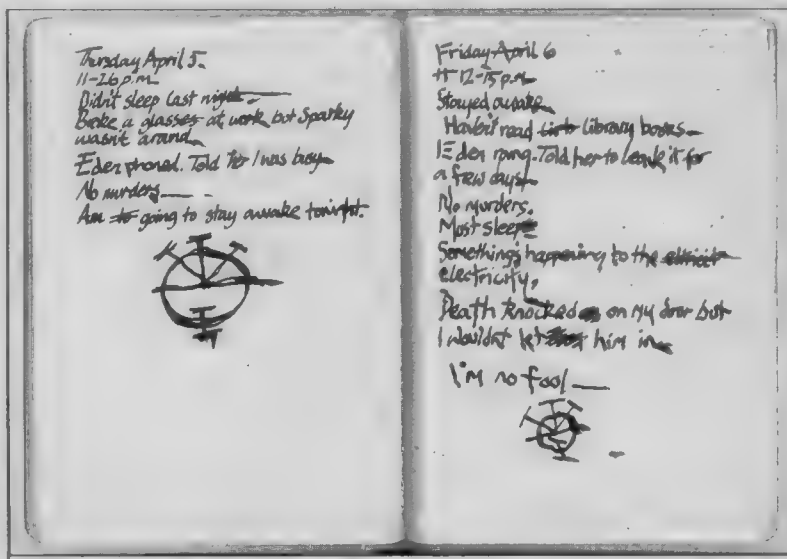 Thursday April 5.
11-26 p.m.
Didn't sleep last night.
Broke a glasses at work but Sparky
wasn't around.
Eden phoned. Told her I was busy.
No murders.
Am to going to stay awake tonight.
Friday April 6
11 12-15 p.m.
Stayed awake.
Haven't read library books.
Eden rang. Told her to leave it for
a few days.
No murders.
Must sleep
Something's happening to the
electricity.
Death knocked on my door but
I wouldn't let him in.
I'm no fool